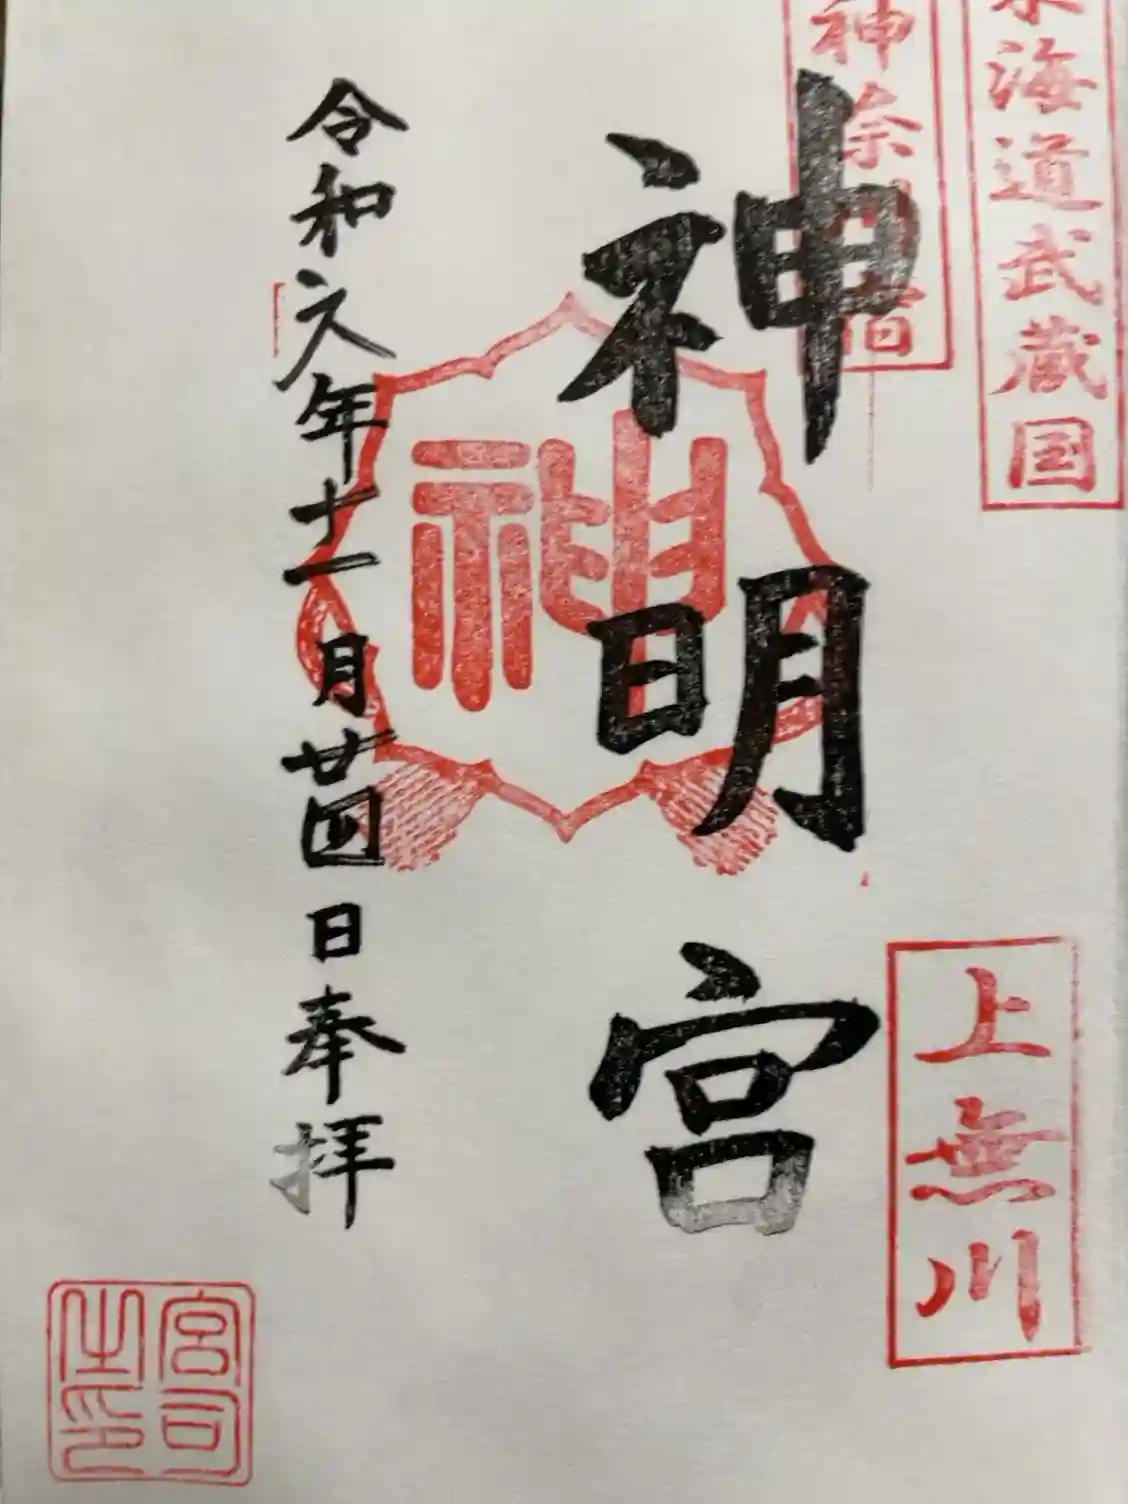 東海道武蔵国
神奈川宿
上無川
神明宮
神
令和元年十一月廿四日奉拝
宮司之印